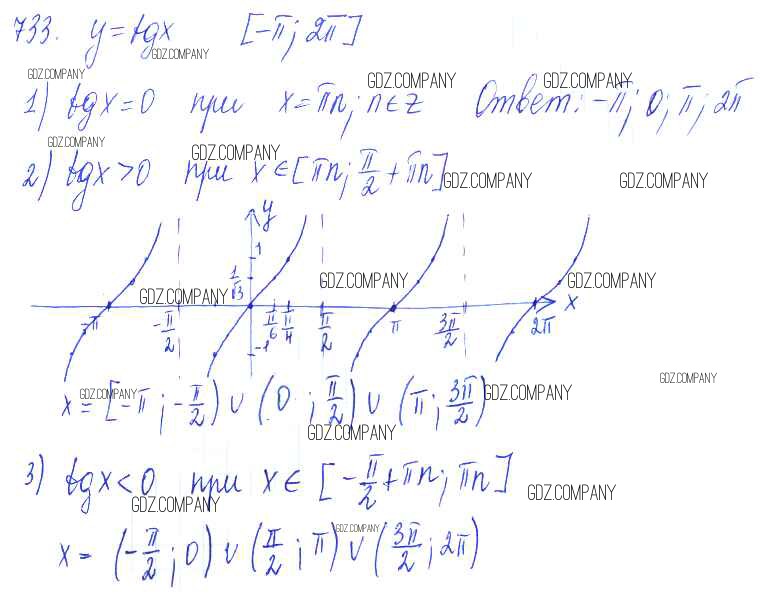 733. y = tgx [-π; 2π]
GDZ.COMPANY
GDZ.COMPANY GDZ.COMPANY GDZ.COMPANY
1) tgx = 0 при x = πn; n ∈ z Ответ: -π; 0; π; 2π
GDZ.COMPANY GDZ.COMPANY
2) tgx > 0 при x ∈ [πn; π/2 + πn]
GDZ.COMPANY GDZ.COMPANY
y
1
1/√3
GDZ.COMPANY GDZ.COMPANY GDZ.COMPANY
-π -π/2 π/6 π/4 π/2 π 3π/2 2π x
-1
GDZ.COMPANY GDZ.COMPANY GDZ.COMPANY
x = [-π; -π/2) ∪ (0; π/2) ∪ (π; 3π/2)
GDZ.COMPANY
3) tgx < 0 при x ∈ [-π/2 + πn; πn]
GDZ.COMPANY GDZ.COMPANY
GDZ.COMPANY
x = (-π/2; 0) ∪ (π/2; π) ∪ (3π/2; 2π)